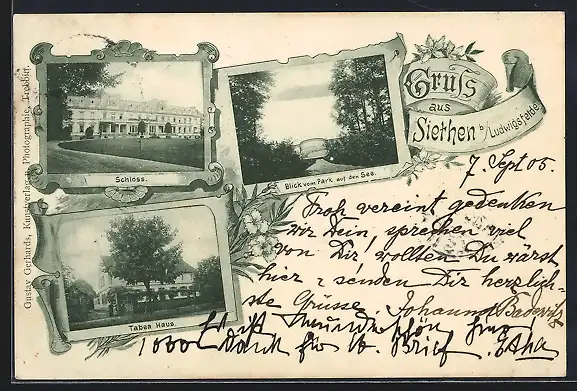 Gruss
aus
Siethen b/Ludwigsfelde
Schloss.
Blick vom Park auf den See.
Tabea Haus.
Gustav Gerhards, Kunstverlag u. Photographie, Trebbin.
7. Sept 05.
Froh vereint gedenken
wir Dein, sprechen viel
von Dir, wollten Du wärst
hier & senden Dir herzlich-
ste Grüsse. Johanna
Es ist schön hier
1000 Dank für Brief.